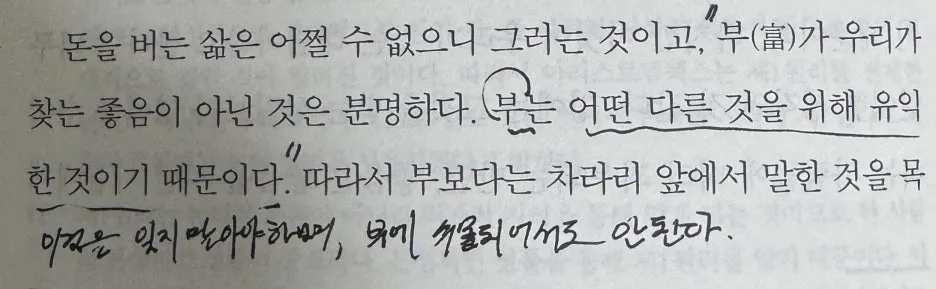 돈을 버는 삶은 어쩔 수 없으니 그러는 것이고, "부(富)가 우리가
찾는 좋음이 아닌 것은 분명하다. 부는 어떤 다른 것을 위해 유익
한 것이기 때문이다." 따라서 부보다는 차라리 앞에서 말한 것을 목
이것은 잊지 말아야하며, 부에 매몰되어서도 안된다.